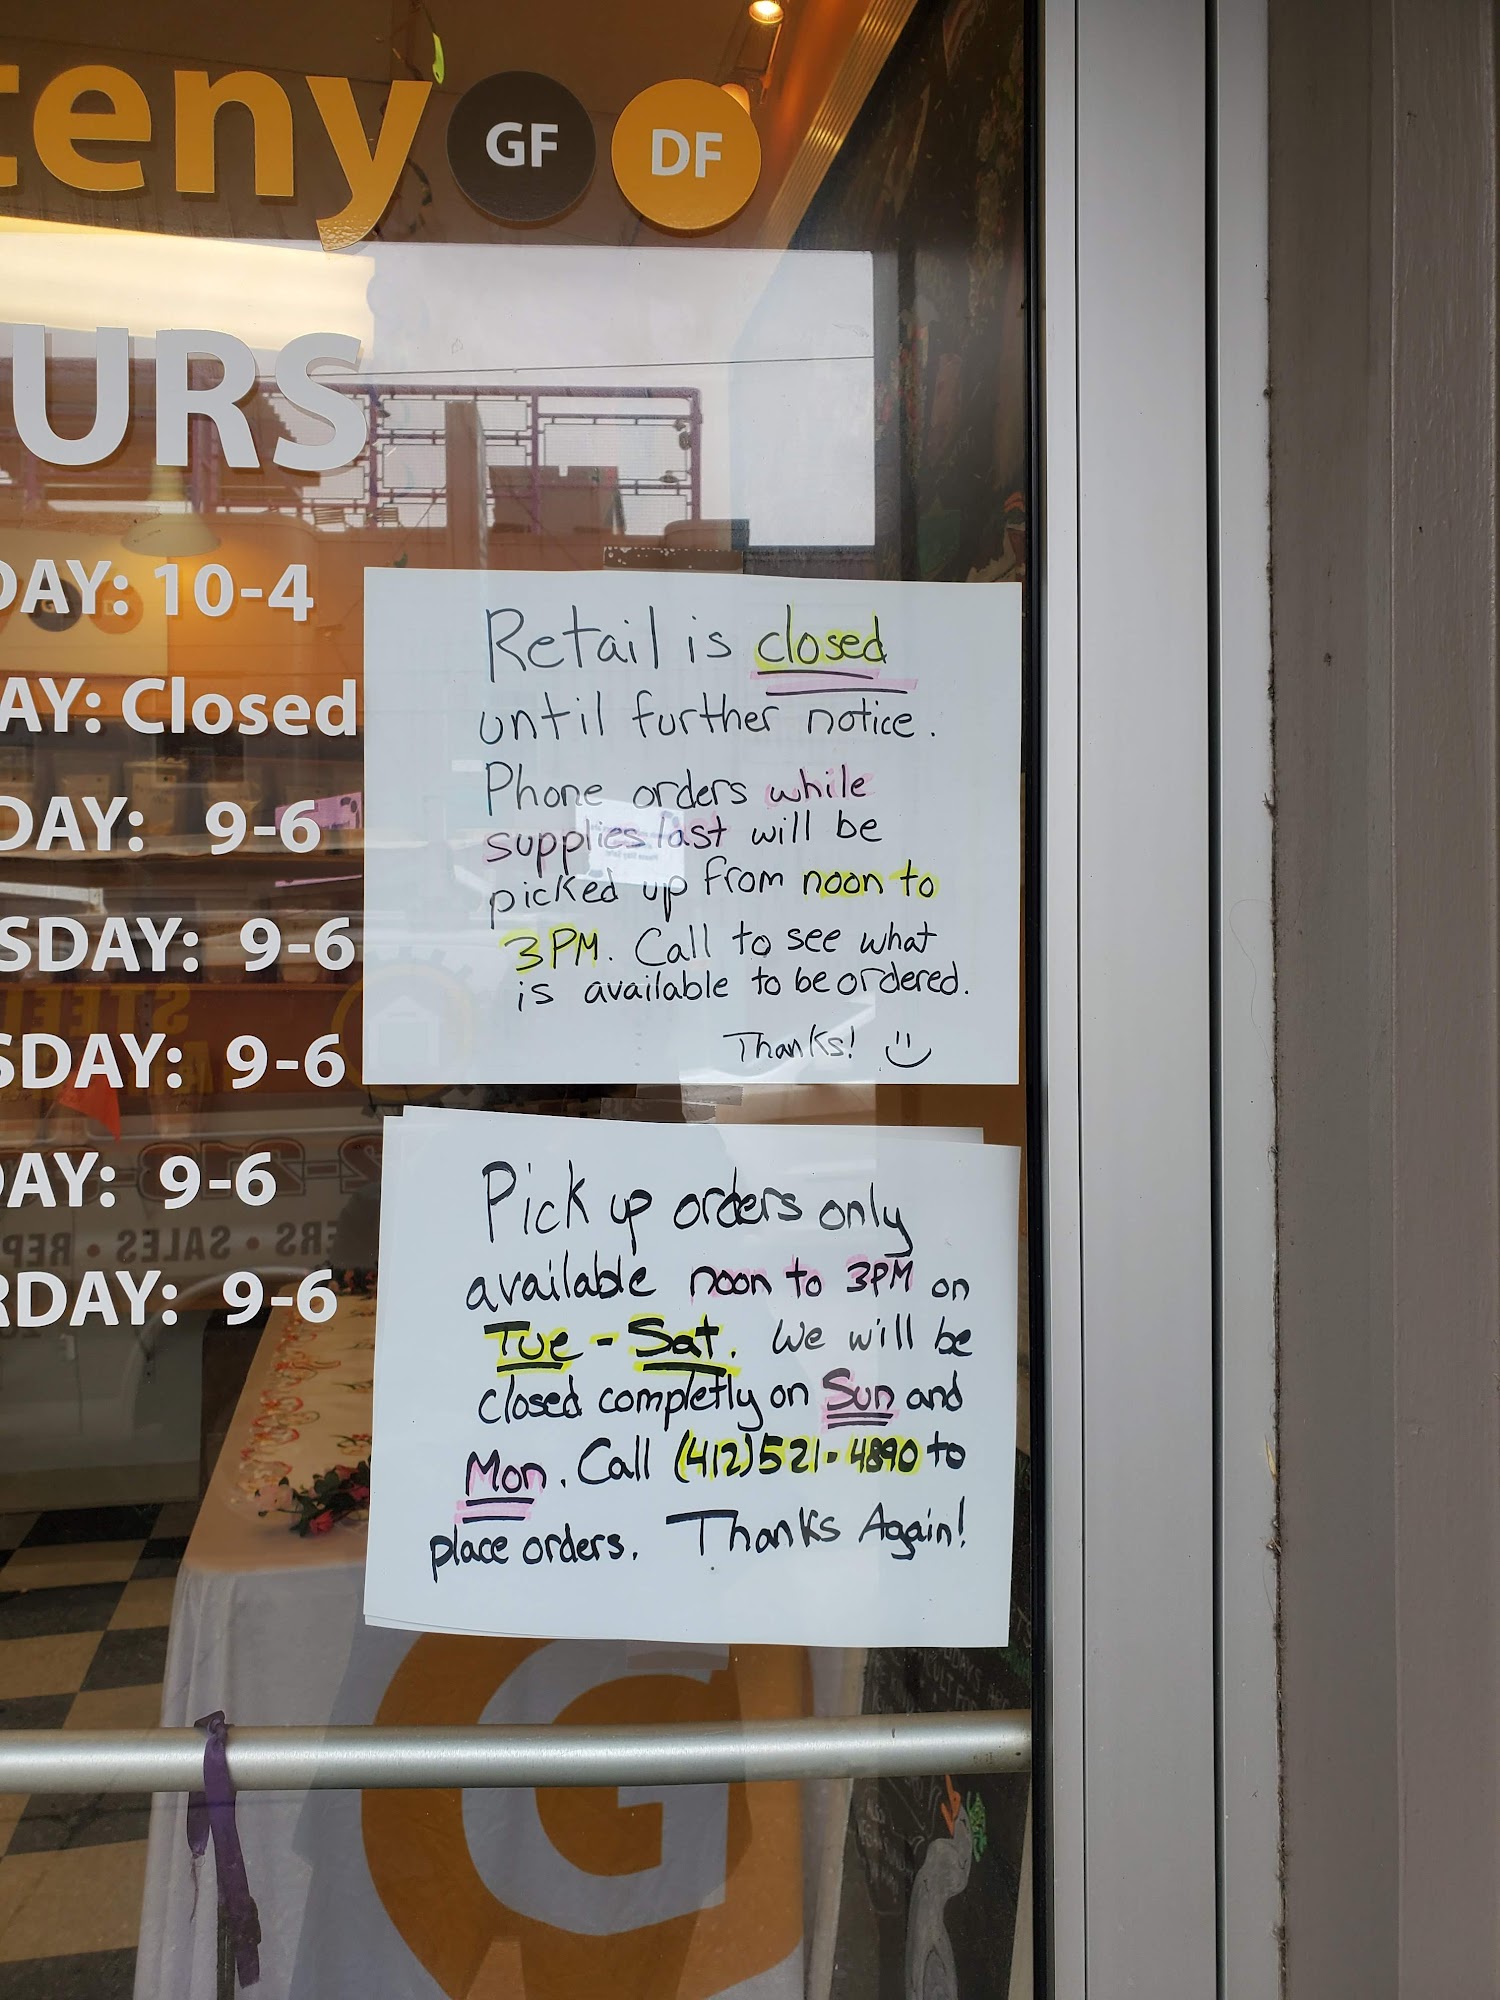 teny GF DF
URS
DAY: 10-4
AY: Closed
DAY: 9-6
SDAY: 9-6
SDAY: 9-6
DAY: 9-6
RDAY: 9-6
Retail is closed
until further notice.
Phone orders while
supplies last will be
picked up from noon to
3PM. Call to see what
is available to be ordered.
Thanks!
Pick up orders only
available noon to 3PM on
Tue - Sat. We will be
closed completly on Sun and
Mon. Call (412)521-4890 to
place orders. Thanks Again!
G